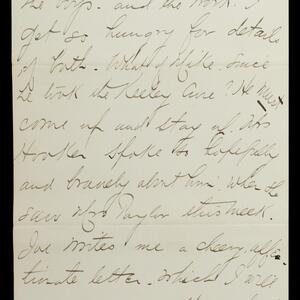 the boys - and the work. I
get so hungry for details
of both - What of Mike since
he took the Keeley Cure? He must
come up and stay at Mrs
Hooker spoke so hopefully
and bravely about him, when she
saw Mrs Taylor this week.
Joe writes me a cheery, affec-
tionate letter - which I will